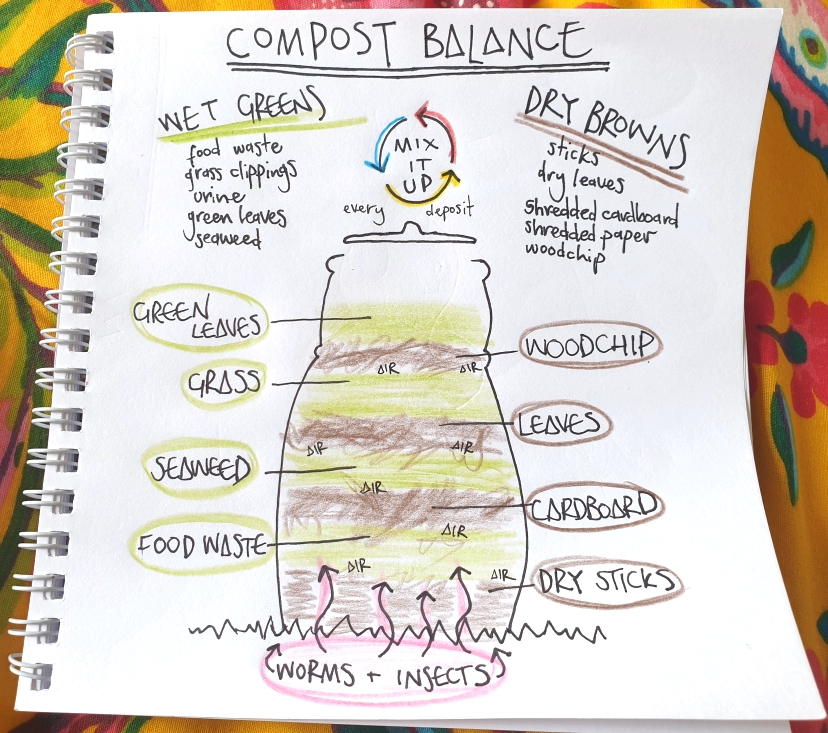 COMPOST BALANCE
WET GREENS
food waste
grass clippings
urine
green leaves
seaweed
MIX
IT
UP
every deposit
DRY BROWNS
sticks
dry leaves
shredded cardboard
shredded paper
woodchip
GREEN
LEAVES
WOODCHIP
AIR AIR
GRASS
LEAVES
AIR AIR
SEAWEED
AIR
CARDBOARD
AIR
FOOD WASTE
AIR AIR
DRY STICKS
WORMS + INSECTS